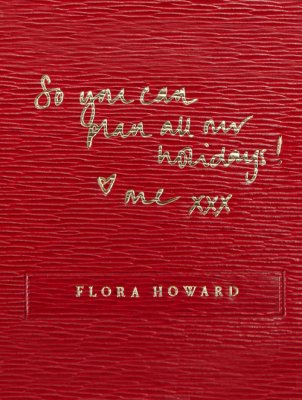 So you can
plan all our
holidays!
♡ me xxx
FLORA HOWARD